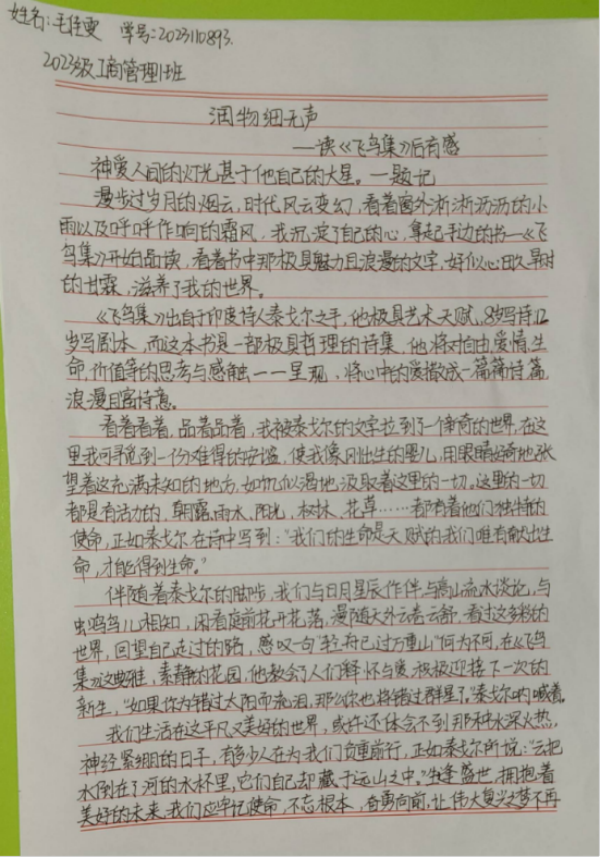 姓名:毛佳雯 学号:2023110893.
2023级工商管理1班
润物细无声
——读《飞鸟集》后有感
神爱人间的灯光甚于他自己的大星。—题记
漫步过岁月的烟云,时代风云变幻,看着窗外淅淅沥沥的小
雨以及呼呼作响的霜风,我沉淀了自己的心,拿起手边的书—《飞
鸟集》开始品读,看着书中那极具魅力且浪漫的文字,好似心田久旱时
的甘霖,滋养了我的世界。
《飞鸟集》出自于印度诗人泰戈尔之手,他极具艺术天赋,8岁写诗,12
岁写剧本,而这本书是一部极具哲理的诗集,他将对自由、爱情、生
命、价值等的思考与感触一一呈现,将心中的爱撒成一篇篇诗篇,
浪漫且富诗意。
看着看着,品着品着,我被泰戈尔的文字拉到了一个新奇的世界,在这
里我可寻觅到一份难得的安谧,使我像刚出生的婴儿,用眼睛好奇地张
望着这充满未知的地方,如饥似渴地汲取着这里的一切。这里的一切
都是有活力的,朝露、雨水、阳光、树林、花草……都有着他们独特的
使命,正如泰戈尔在诗中写到:“我们的生命是天赋的我们唯有献出生
命,才能得到生命。”
伴随着泰戈尔的脚步,我们与日月星辰作伴,与高山流水谈论,与
虫鸣鸟儿相知,闲看庭前花开花落,漫随天外云卷云舒,看过这多彩的
世界,回望自己走过的路,感叹一句“轻舟已过万重山”何为不可,在《飞鸟
集》这典雅,素静的花园,他教会了人们释怀与爱,积极迎接下一次的
新生,“如果你为错过太阳而流泪,那么你也将错过群星了。”泰戈尔呐喊着。
我们生活在这平凡又美好的世界,或许还体会不到那种水深火热,
神经紧绷的日子,有多少人在为我们负重前行,正如泰戈尔所说:“云把
水倒在了河的水杯里,它们自己却藏于远山之中。”生逢盛世,拥抱着
美好的未来,我们应牢记使命,不忘根本,奋勇向前,让伟大复兴之梦不再